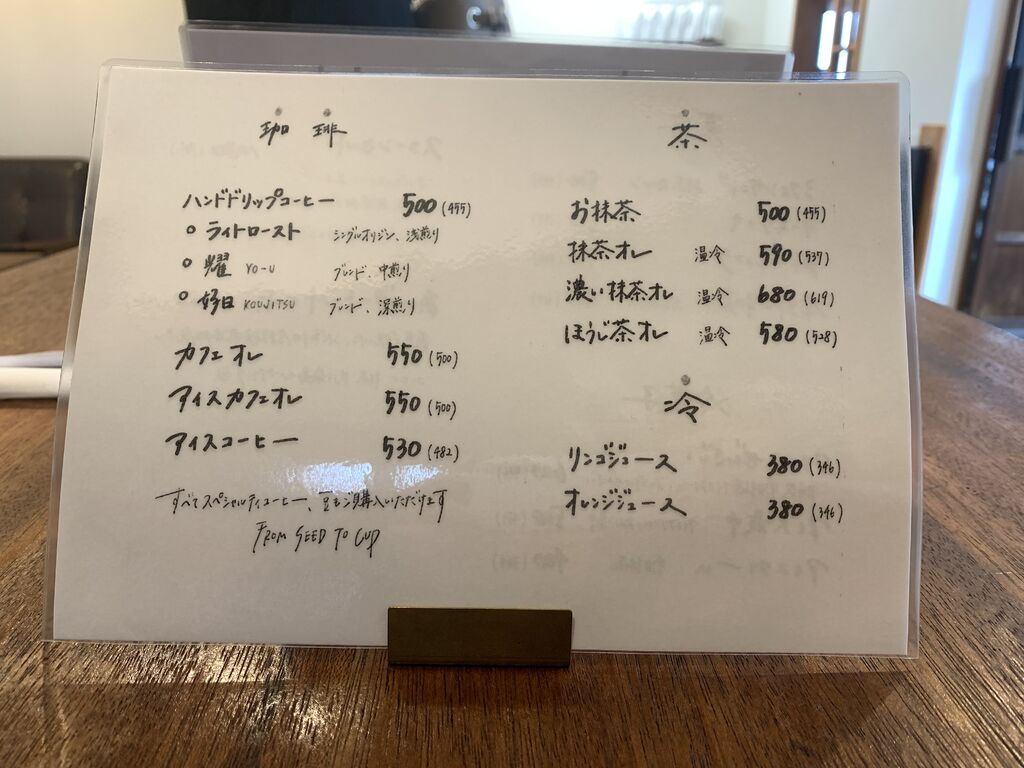 珈琲
ハンドドリップコーヒー 500(455)
○ ライトロースト シングルオリジン、浅煎り
○ 耀 YO-U ブレンド、中煎り
○ 好日 KOUJITSU ブレンド、深煎り
カフェオレ 550(500)
アイスカフェオレ 550(500)
アイスコーヒー 530(482)
すべてスペシャルティコーヒー、豆もご購入いただけます
FROM SEED TO CUP
茶
お抹茶 500(455)
抹茶オレ 温冷 590(537)
濃い抹茶オレ 温冷 680(619)
ほうじ茶オレ 温冷 580(528)
冷
リンゴジュース 380(346)
オレンジジュース 380(346)